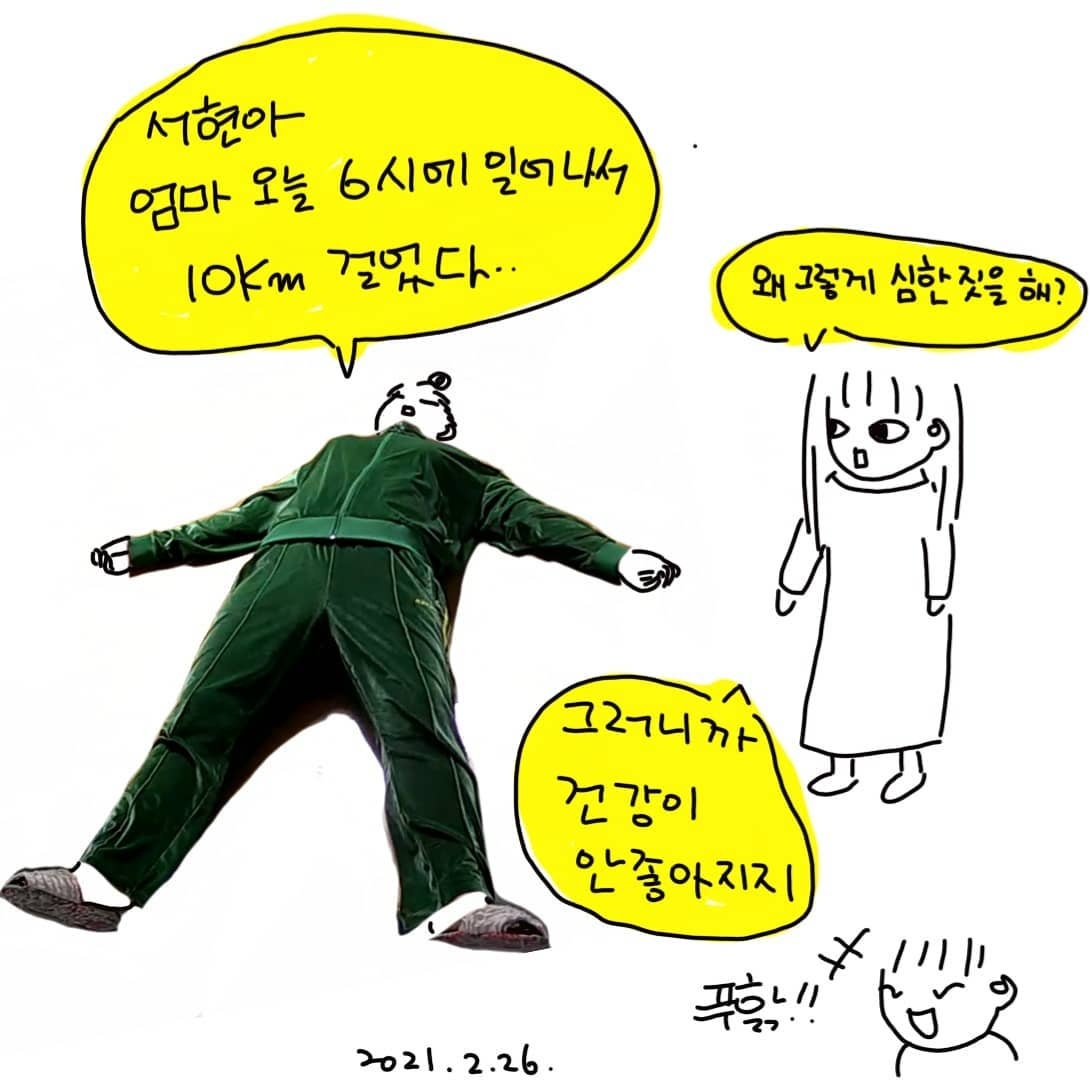 서현아
엄마 오늘 6시에 일어나서
10Km 걸었다..
왜 그렇게 심한 짓을 해?
그러니까
건강이
안좋아지지
푸흙!!
2021.2.26.